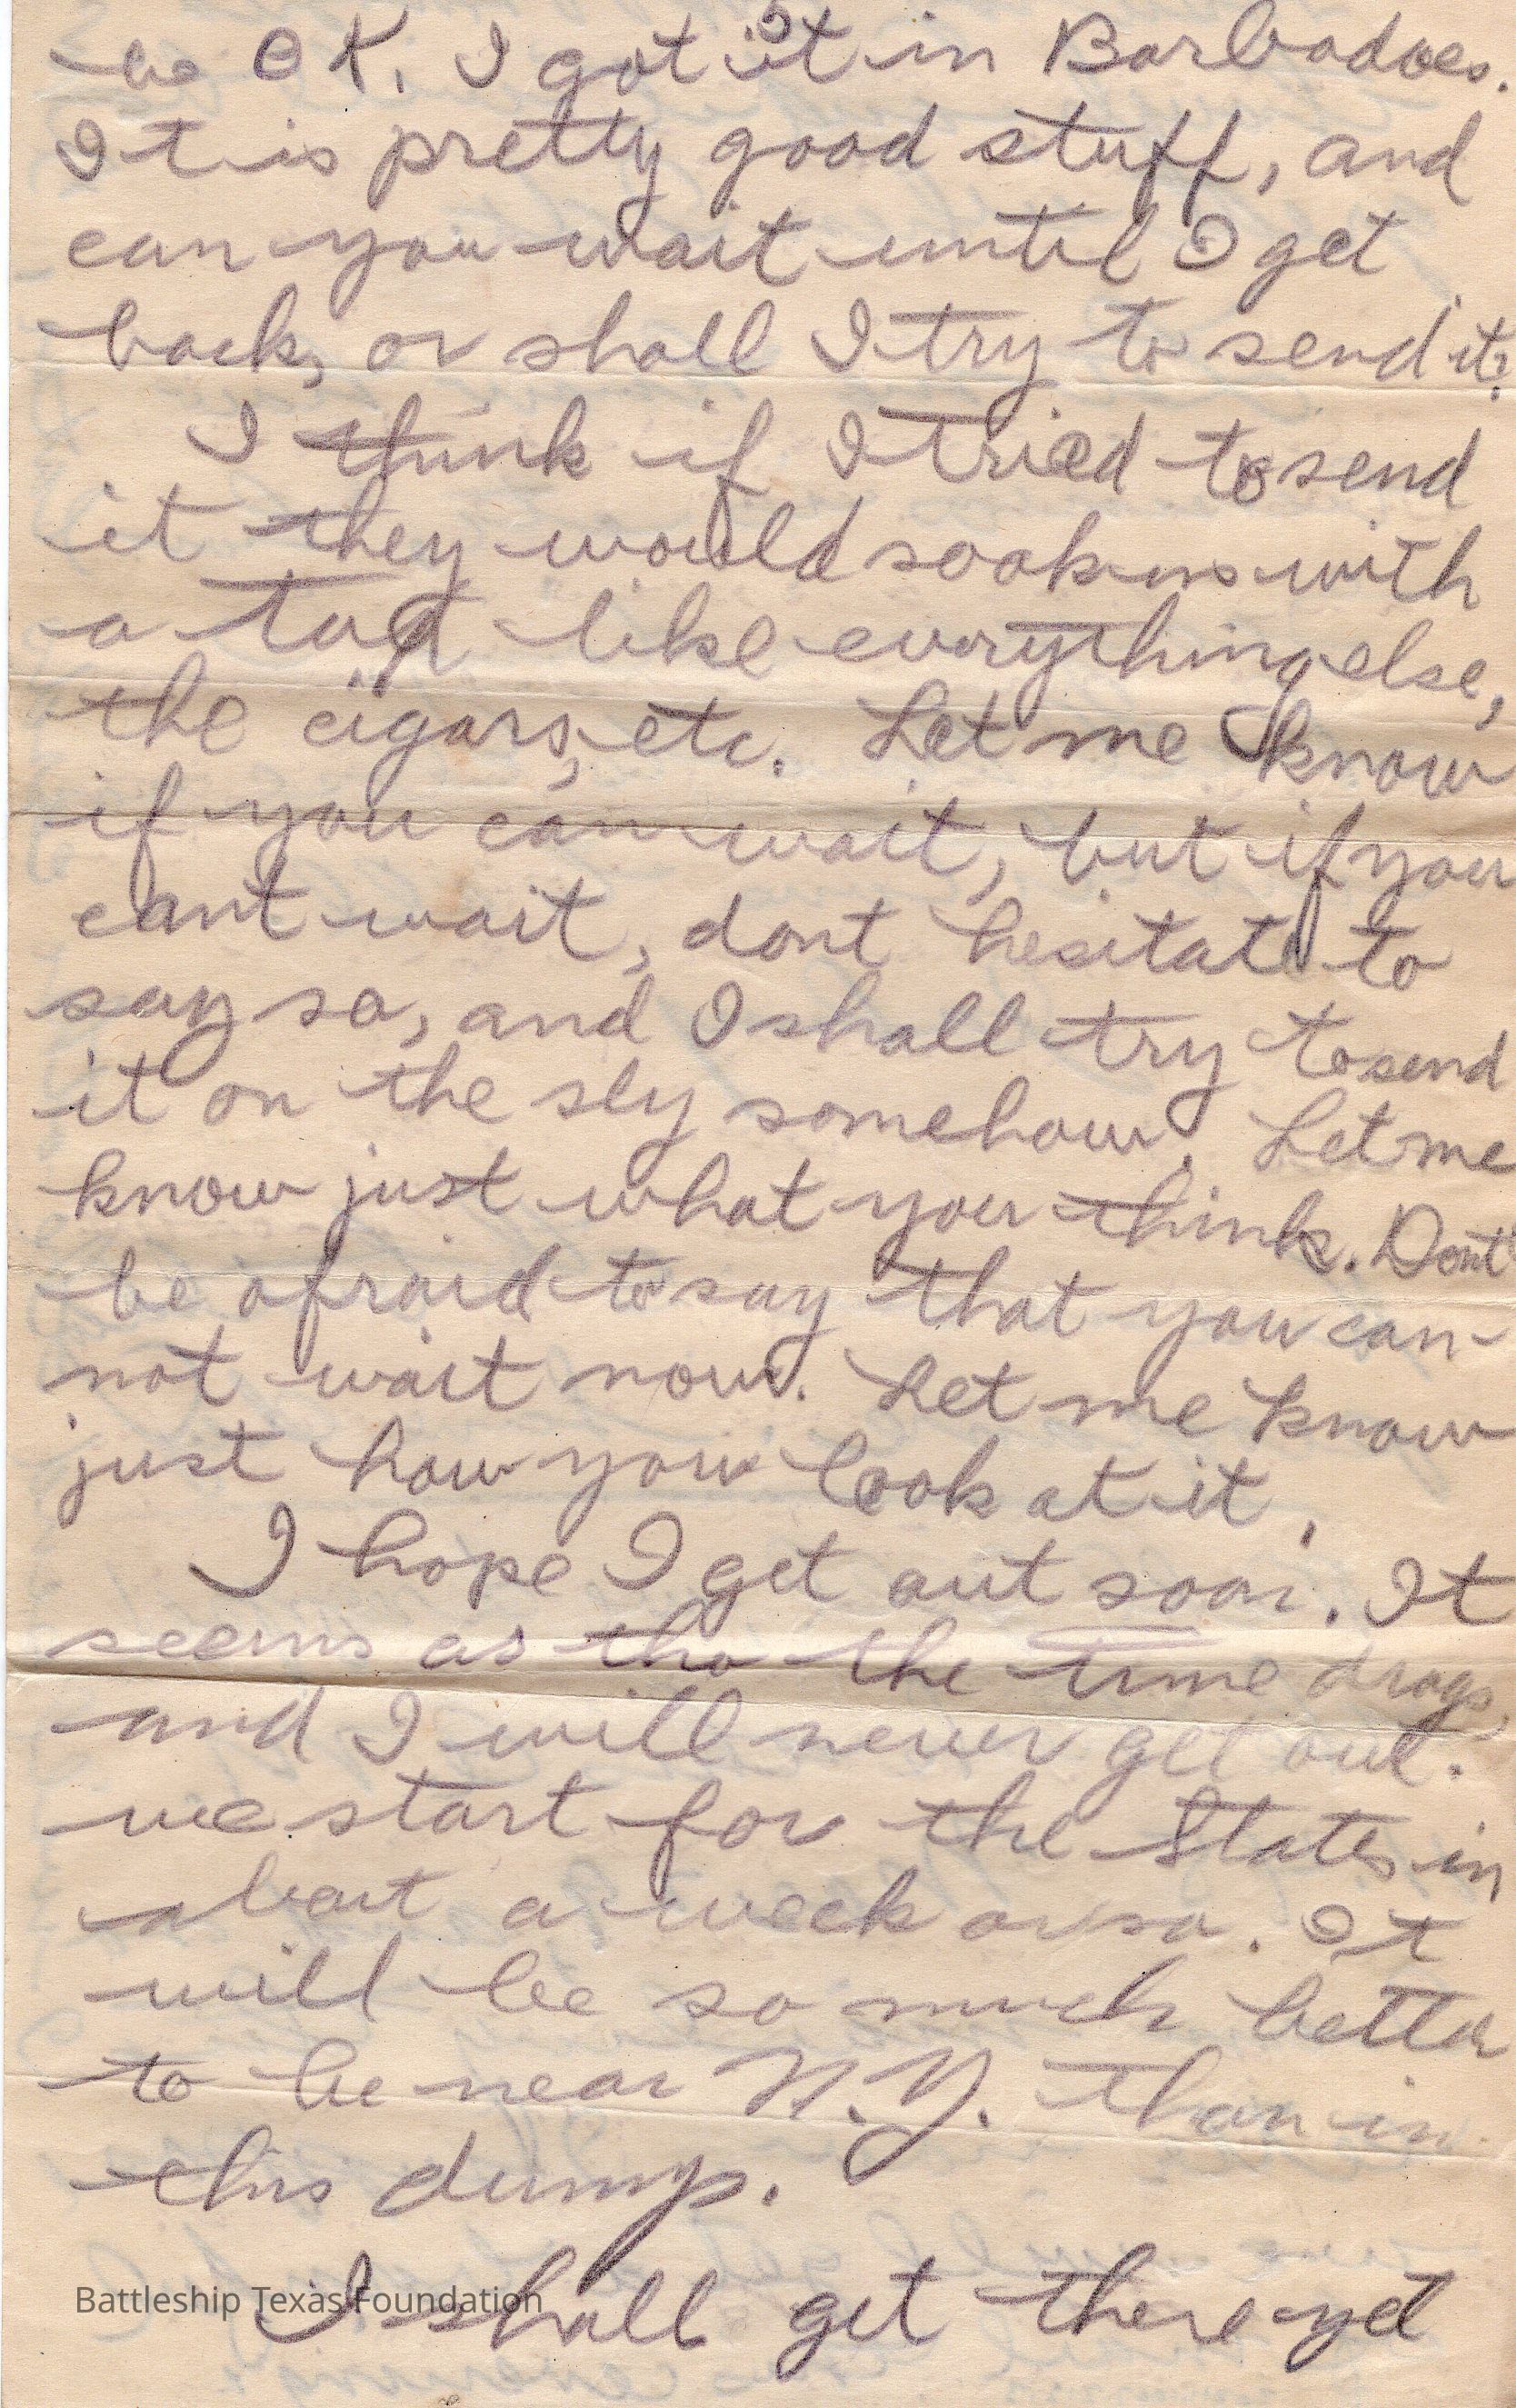 be OK. I got it in Barbadoes.
It is pretty good stuff, and
can you wait until I get
back, or shall I try to send it?
I think if I tried to send
it they would soak us with
a tax like everything else,
the cigars, etc. Let me know
if you can wait, but if you
cant wait, dont hesitate to
say so, and I shall try to send
it on the sly somehow. Let me
know just what you think. Dont
be afraid to say that you can-
not wait now. Let me know
just how you look at it.
I hope I get out soon. It
seems as tho the time drags,
and I will never get out.
we start for the States in
about a week or so. It
will be so much better
to be near N.Y. than in
this dump.
I shall get there yet
Battleship Texas Foundation